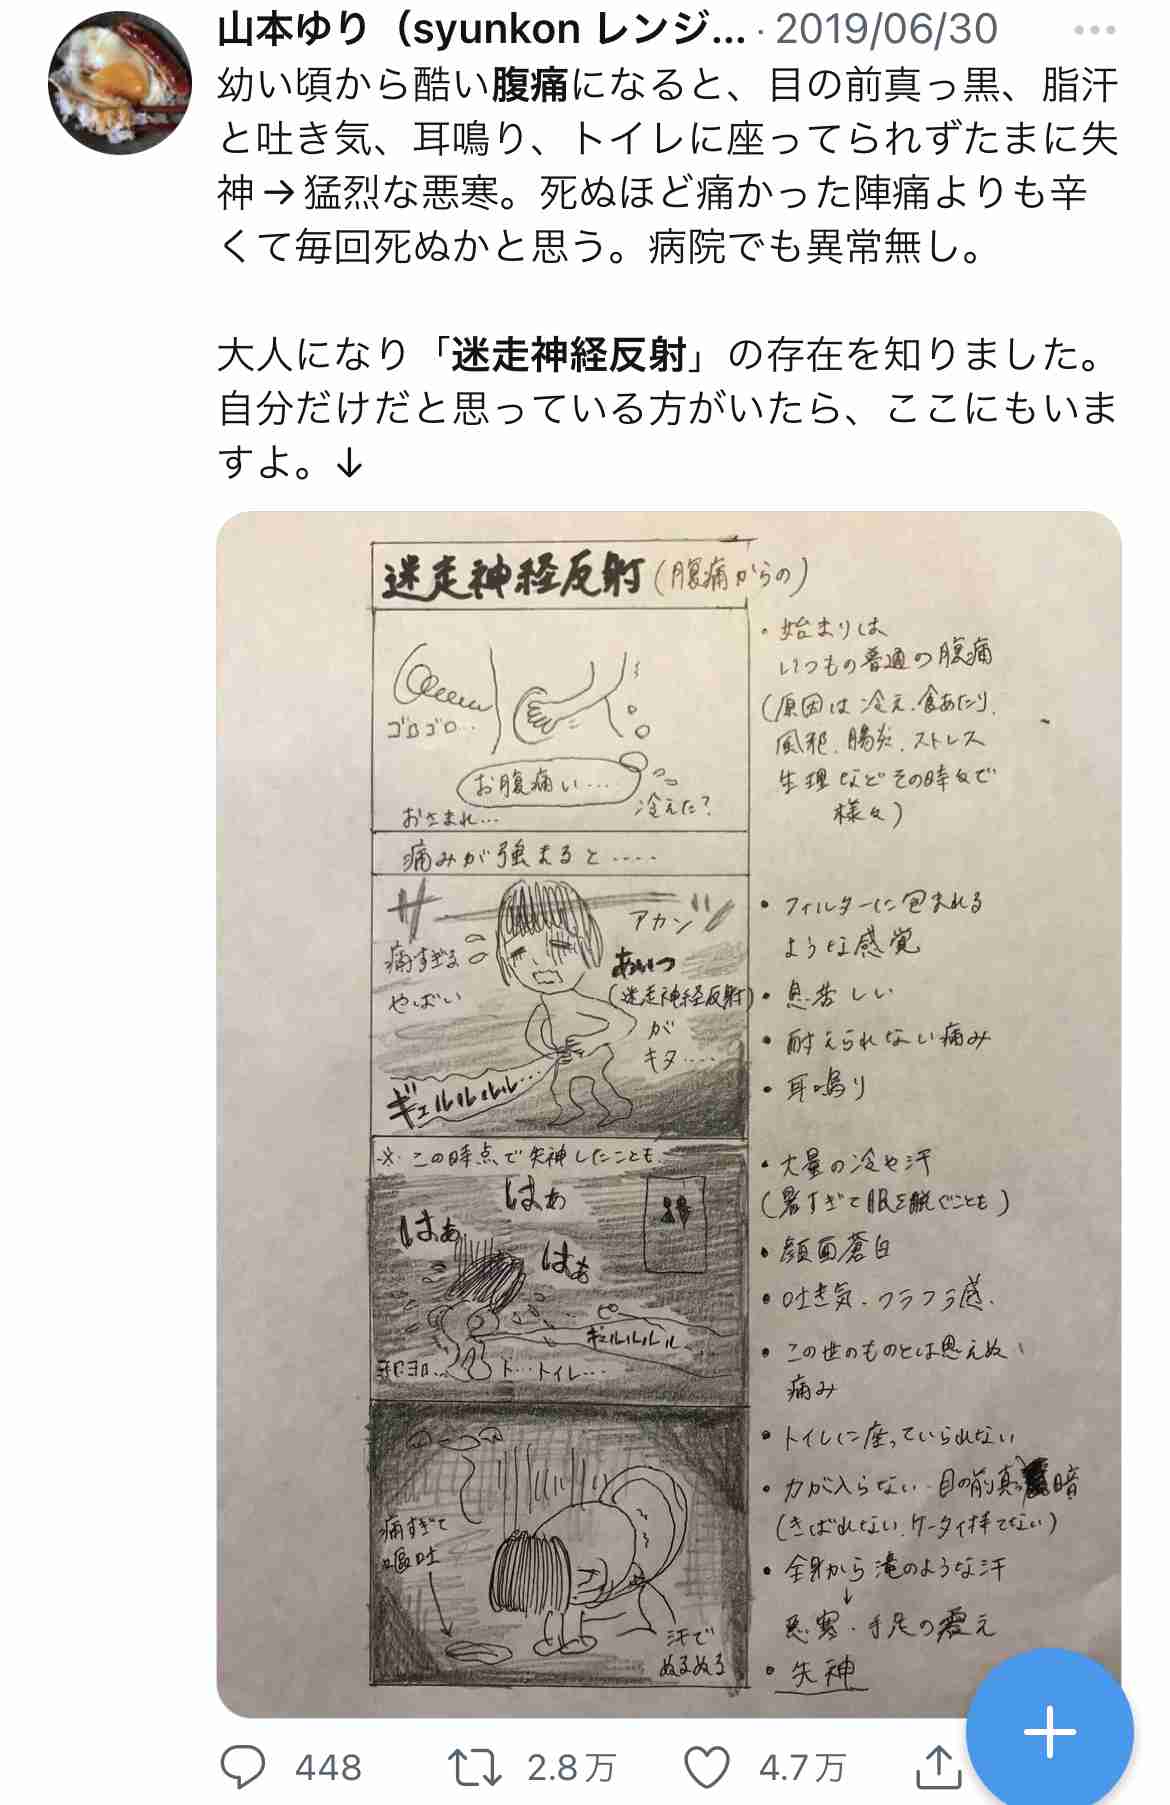 山本ゆり（syunkon レンジ... · 2019/06/30
幼い頃から酷い腹痛になると、目の前真っ黒、脂汗
と吐き気、耳鳴り、トイレに座ってられずたまに失
神→猛烈な悪寒。死ぬほど痛かった陣痛よりも辛
くて毎回死ぬかと思う。病院でも異常無し。
大人になり「迷走神経反射」の存在を知りました。
自分だけだと思っている方がいたら、ここにもいま
すよ。↓
迷走神経反射(腹痛からの)
ゴロゴロ...
お腹痛い....
冷えた?
おさまれ...
・始まりは
いつもの普通の腹痛
(原因は冷え、食あたり、
風邪、腸炎、ストレス
生理などその時々で
様々)
痛みが強まると.....
痛すぎる
やばい
アカン
あいつ
(迷走神経反射)
が
キタ....
ギュルルルル...
・フィルターに包まれる
ような感覚
・息苦しい
・耐えられない痛み
・耳鳴り
※この時点で失神したことも
はぁ
はぁ
はぁ
ギュルルルル...
ヨロヨロ...
ト...トイレ...
・大量の冷や汗
(暑すぎて服を脱ぐことも)
・顔面蒼白
・吐き気、フラフラ感、
・この世のものとは思えぬ
痛み
痛すぎて
嘔吐
汗で
ぬるぬる
・トイレに座っていられない
・力が入らない 目の前真っ暗
(きばれない、ケータイ持てない)
・全身から滝のような汗
↓
悪寒・手足の震え
・失神
448 2.8万 4.7万